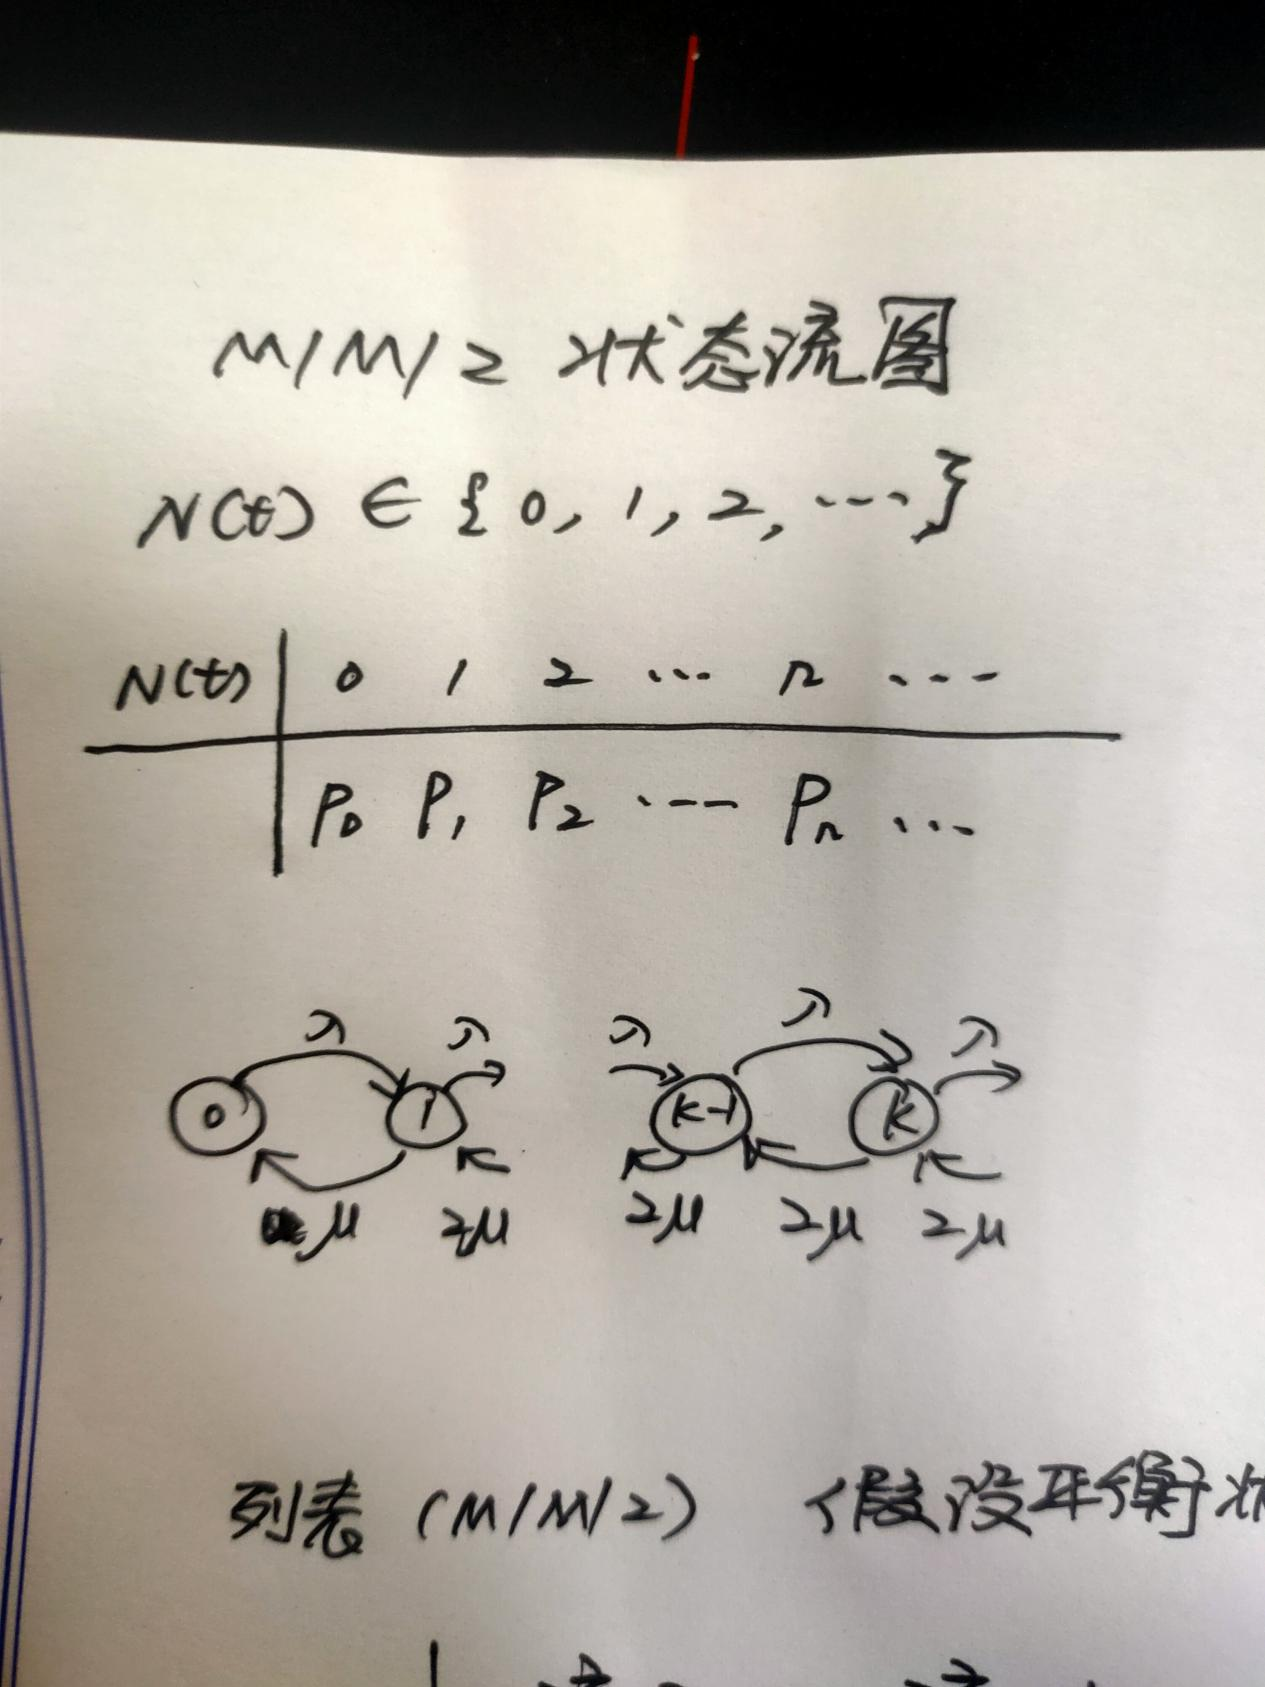 M/M/2 状态流图
N(t) ∈ {0, 1, 2, ...}
N(t) 0 1 2 ... n ...
P0 P1 P2 ... Pn ...
λ λ λ λ λ
0 1 k-1 k
μ 2μ 2μ 2μ 2μ
列表 (M/M/2) 假设平衡